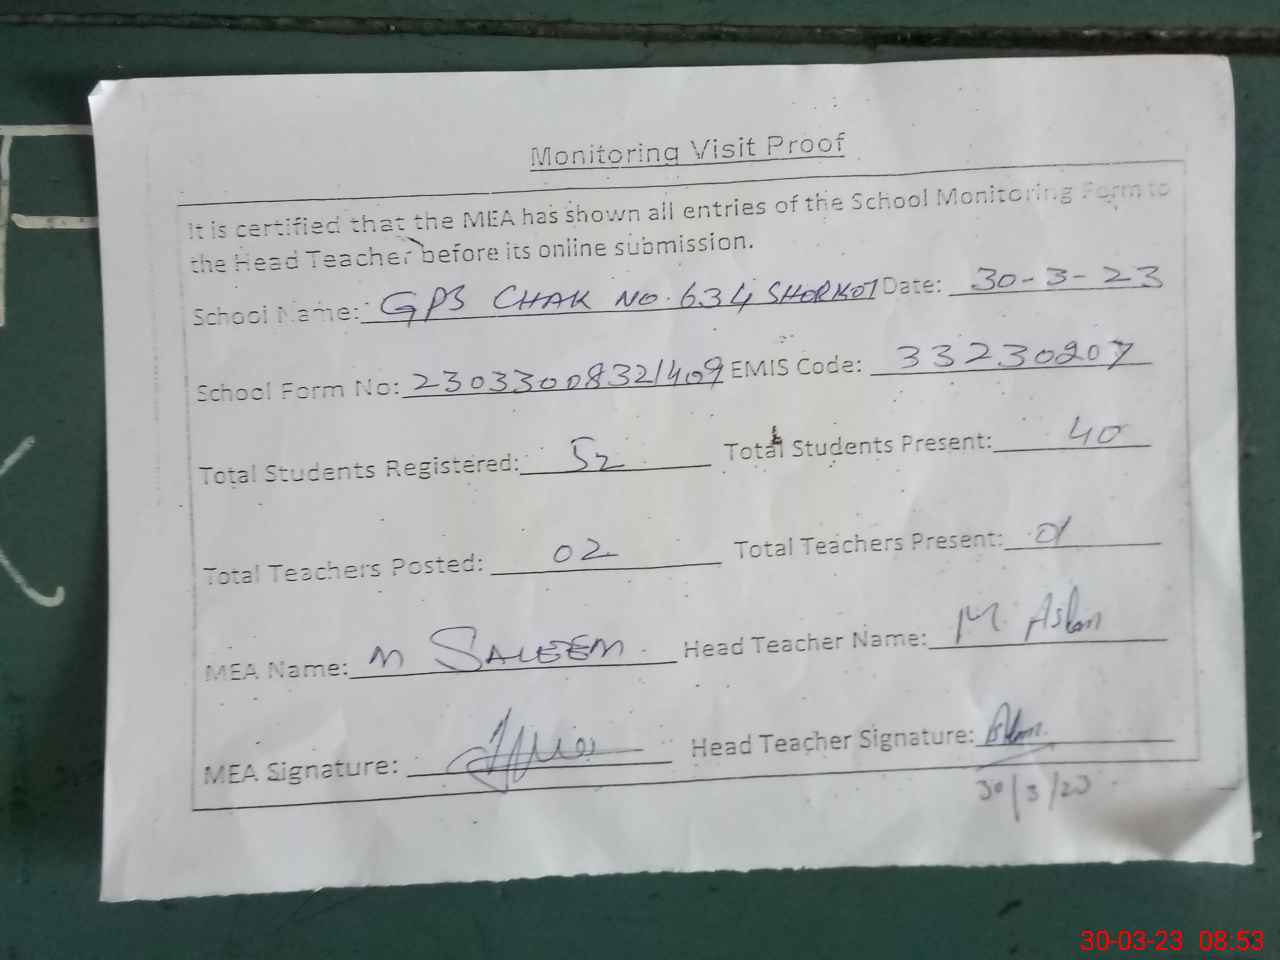 Monitoring Visit Proof
It is certified that the MEA has shown all entries of the School Monitoring Form to
the Head Teacher before its online submission.
School Name: GPS CHAK NO. 634 SHORKOT Date: 30-3-23
School Form No: 23033008321409 EMIS Code: 33230207
Total Students Registered: 52 Total Students Present: 40
Total Teachers Posted: 02 Total Teachers Present: 01
MEA Name: M SALEEM Head Teacher Name: M. Aslam
MEA Signature: Head Teacher Signature: Aslam
30/3/23
30-03-23 08:53